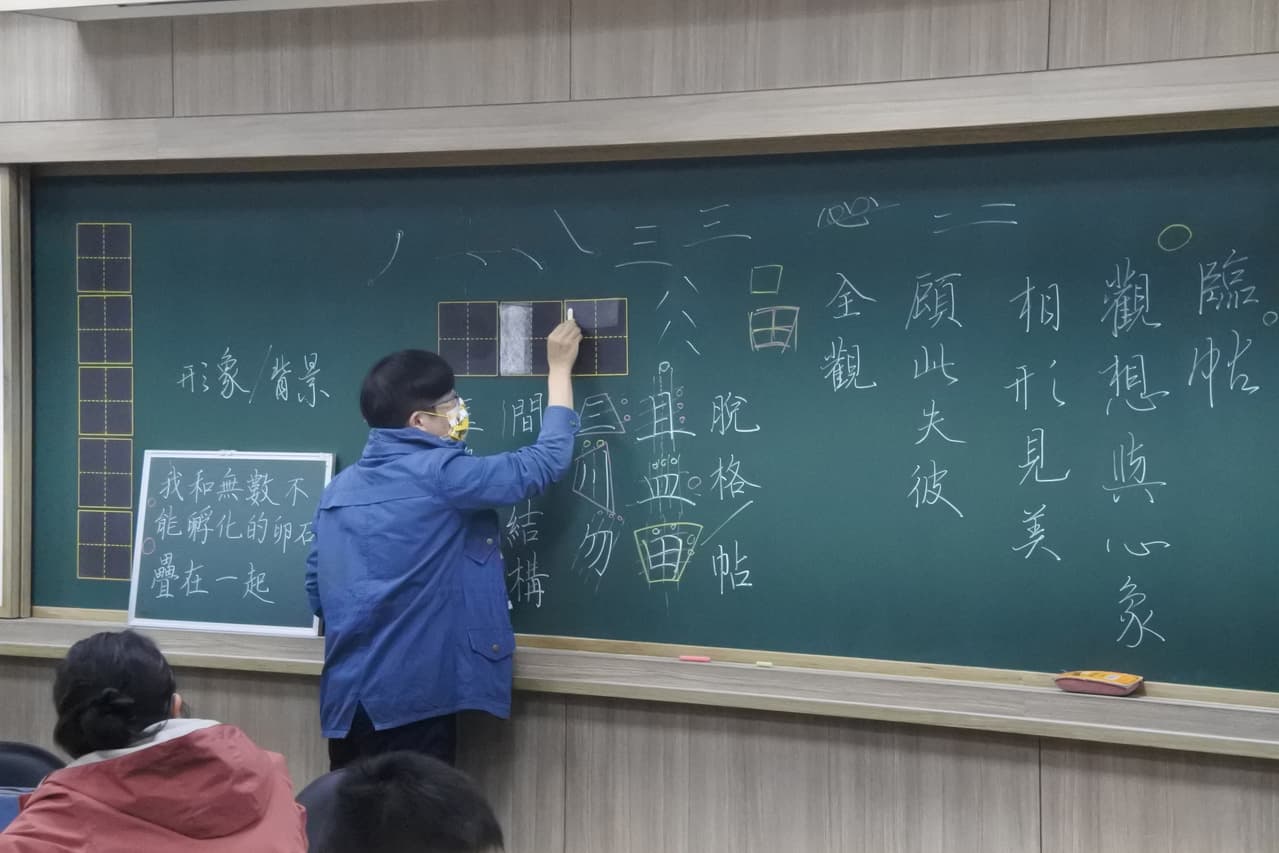 臨帖
觀想與心象
相形見美
顧此失彼
全觀
脫格帖
六
且皿田
三川勿
間結構
形象/背景
我和無數不
能孵化的卵石
疊在一起
丿
八
三三
心
二二
田